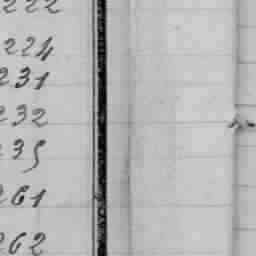 222
224
231
232
235
261
262